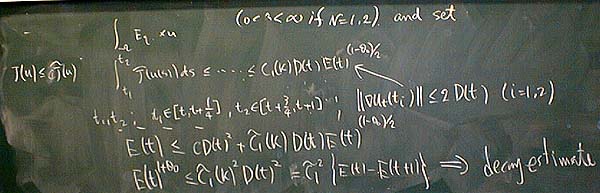 (0<r<∞ if N=1,2) and set
∫_Ω E_2 · xu
J(u) ≤ C̃J̃(u) ∫_{t_1}^{t_2} J̃(u(s))ds ≤ ····· ≤ C_1(K) D(t) E(t)^{(1-θ_0)/2}
t_1, t_2 ; t_1∈[t, t+1/4], t_2∈[t+3/4, t+1] ; ||∇u_t(t_i)|| ≤ 2 D(t) (i=1,2)
E(t) ≤ CD(t)² + C̃_1(K) D(t) E(t)^{(1-θ_0)/2}
E(t)^{1+θ_0} ≤ C̃_1(K)² D(t)² = C̃_1² {E(t) - E(t+1)} ⇒ decay estimate